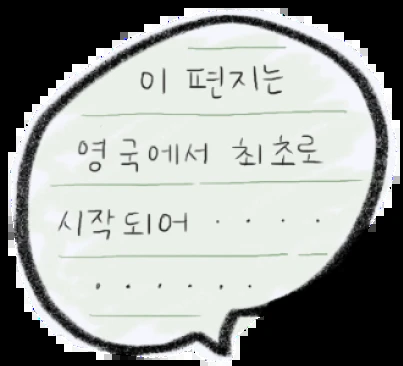 이 편지는
영국에서 최초로
시작되어 · · · ·
· · · · · ·